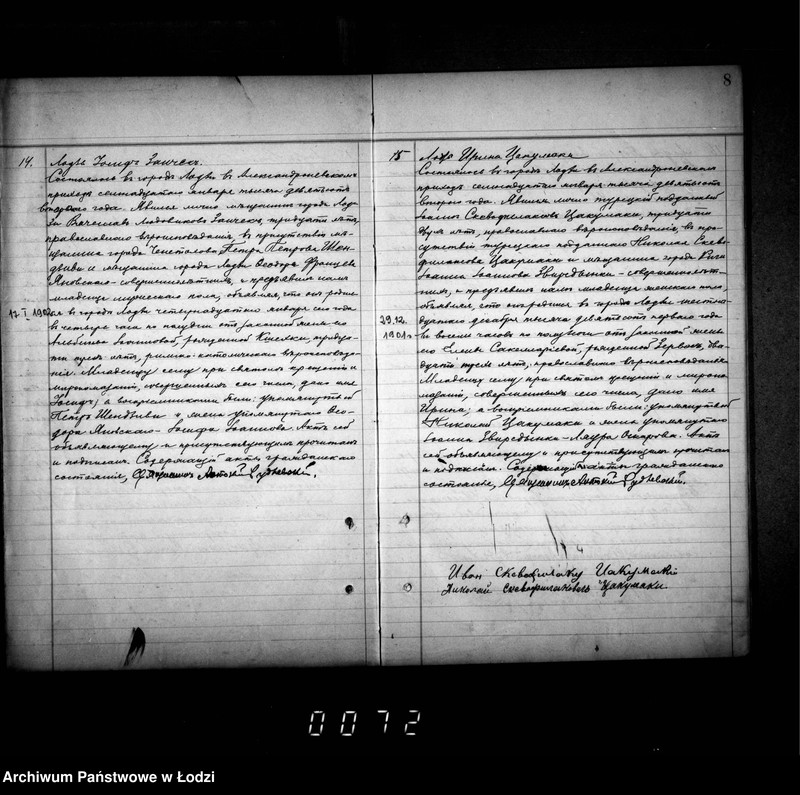 8
14.
Лодзь Іосифъ
Состоялось въ городѣ Лодзи въ Александроневскомъ
приходѣ семнадцатаго января тысяча девятьсотъ
второго года. Явился лично мѣщанинъ города Лод-
зи Вячеславъ Людовиковъ тридцати лѣтъ,
православнаго вѣроисповѣданія, въ присутствіи мѣ-
щанина города Петра Петрова
и мѣщанина города Лодзи Ѳеодора
совершеннолѣтнихъ, и предъявилъ намъ
младенца мужескаго пола, объявляя, что онъ родил-
17 I 190
ся въ городѣ Лодзи четырнадцатаго января сего года
въ четыре часа по полудни отъ законной жены его
рожденной тридца-
ти лѣтъ, римско-католическаго вѣроисповѣда-
нія. Младенцу сему при святомъ крещеніи и
миропомазаніи, совершенныхъ сего числа, дано имя
Іосифъ, а воспріемниками были: упомянутый
Петръ и жена упомянутаго Ѳео-
дора Іоаннова Актъ сей
объявляющему и присутствующимъ прочитанъ
и подписанъ. Содержащій акты гражданскаго
состоянія, Священникъ Антоній Рудлевскій.
15
Лодзь Ирина Цакумаки
Состоялось въ городѣ Лодзи въ Александроневскомъ
приходѣ семнадцатаго января тысяча девятьсотъ
второго года. Явился лично турецкій подданный
Іоаннъ Скевофилаковъ Цакумаки, тридцати
двухъ лѣтъ, православнаго вѣроисповѣданія, въ при-
сутствіи турецкаго подданнаго Николая Скево-
филакова Цакумаки и мѣщанина города Риги
Іоанна совершеннолѣт-
нихъ, и предъявилъ намъ младенца женскаго пола,
объявляя, что она родилась въ городѣ Лодзи
29.12.
декабря тысяча девятьсотъ перваго года
1901 г.
въ восемь часовъ по полуночи отъ законной жены
его Елены рожденной два-
дцати трехъ лѣтъ, православнаго вѣроисповѣданія.
Младенцу сему при святомъ крещеніи и миропо-
мазаніи, совершенныхъ сего числа, дано имя
Ирина; а воспріемниками были: упомянутый
Николай Цакумаки и жена упомянутаго
Іоанна Лаура Оскаровна. Актъ
сей объявляющему и присутствующимъ прочитанъ
и подписанъ. Содержащій акты гражданскаго
состоянія, Священникъ Антоній Рудлевскій.
Иван Скевофилаку Цакумаки
Николай Скевофилаковъ Цакумаки
0072
Archiwum Państwowe w Łodzi